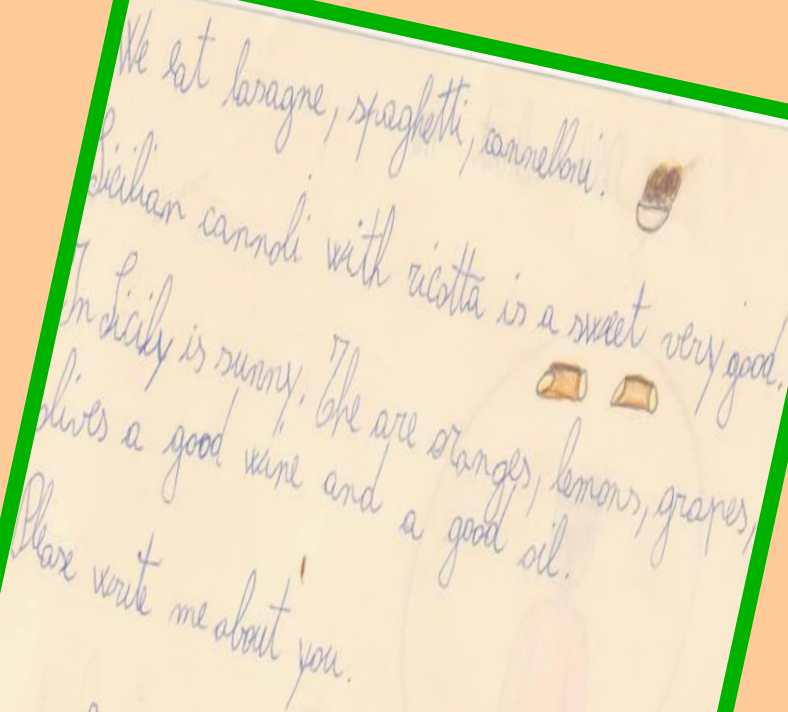 We eat lasagne, spaghetti, cannelloni.
Sicilian cannoli with ricotta is a sweet very good.
In Sicily is sunny. The are oranges, lemons, grapes,
olives a good wine and a good oil.
Please write me about you.